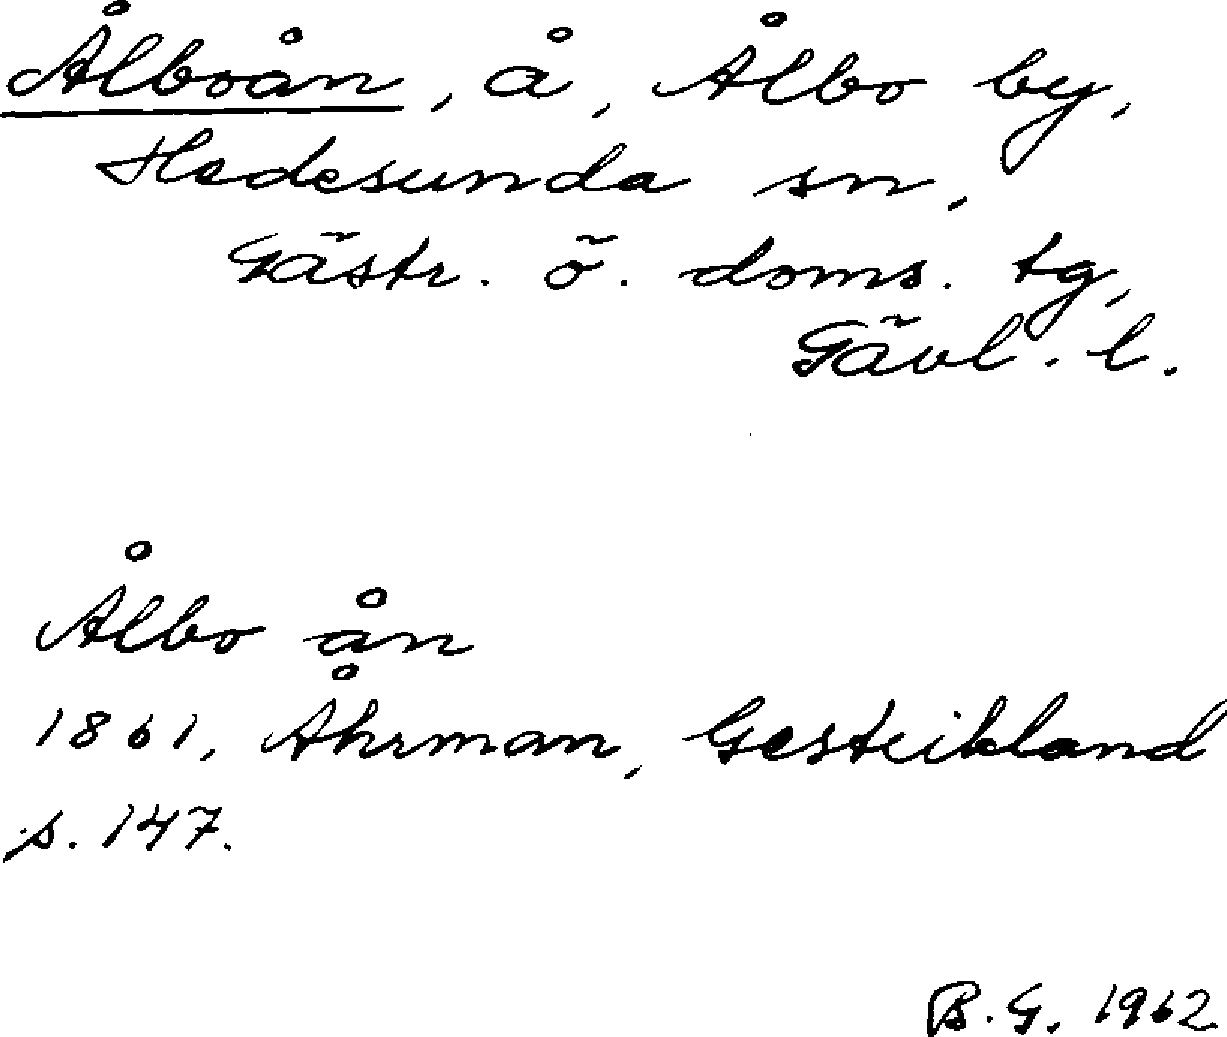 Ålboån, å, Ålbo by,
Hedesunda sn,
Gästr. ö. doms. tg,
Gävl. l.
Ålbo ån
1861, Åhrman, Gestrikland
s. 147.
B. G. 1962